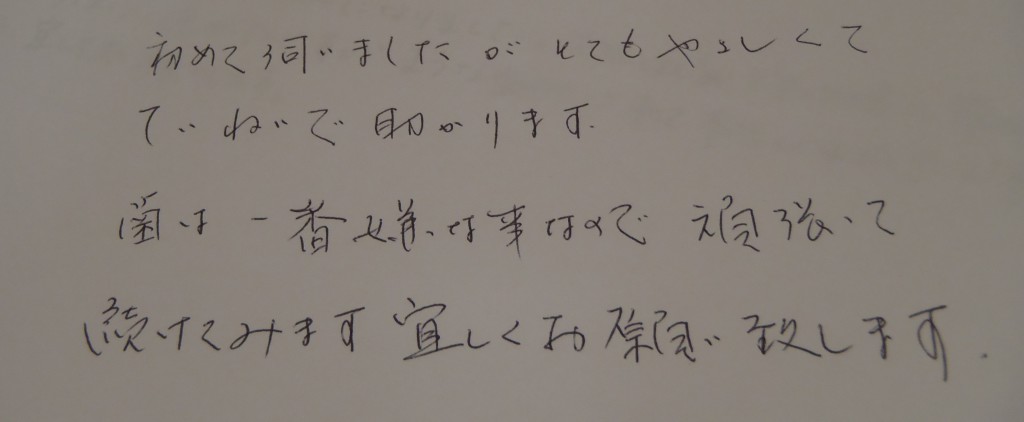 初めて伺いましたがとてもやさしくて
ていねいで助かります.
歯は一番嫌な事なので 頑張って
続けてみます 宜しくお願い致します.